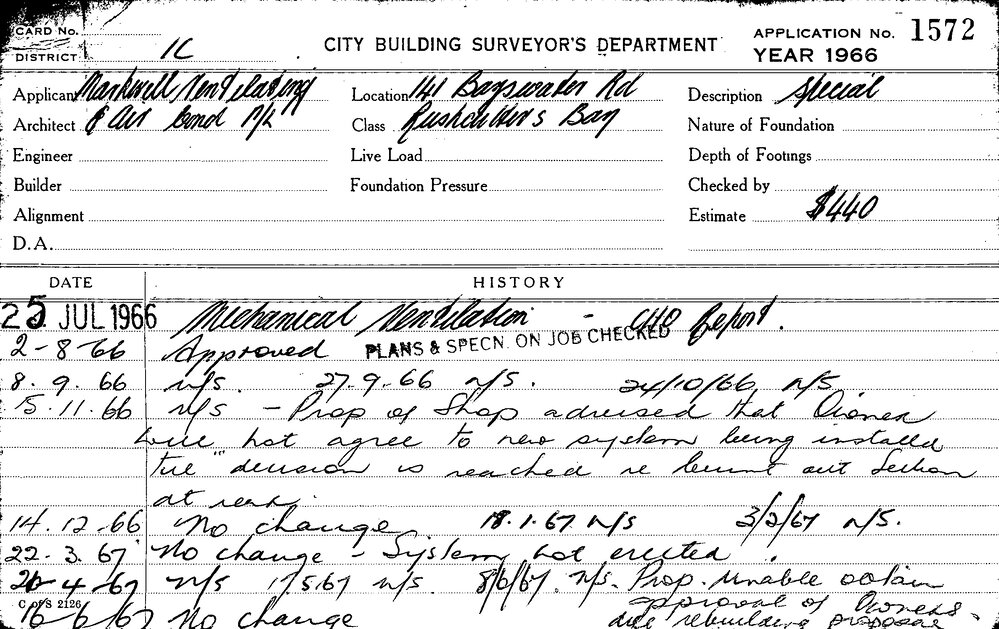 CARD No.
DISTRICT 1C
CITY BUILDING SURVEYOR'S DEPARTMENT
APPLICATION No. 1572
YEAR 1966
Applicant Markwell Ventilating
Location 141 Bayswater Rd
Description Special
Architect & Air Cond P/L
Class Rushcutters Bay
Nature of Foundation
Engineer
Live Load
Depth of Footings
Builder
Foundation Pressure
Checked by
Alignment
Estimate $440
D.A.
DATE HISTORY
25 JUL 1966 Mechanical Ventilation - CHO Report.
2-8-66 Approved PLANS & SPECN. ON JOB CHECKED
8.9.66 n/s. 27.9.66 n/s. 24/10/66 n/s
15.11.66 n/s - Prop of Shop advised that Owner
will not agree to new system being installed
till decision is reached re burnt out Section
at rear.
14.12.66 No change 18.1.67 n/s 3/2/67 n/s.
22.3.67 No change - System not erected.
4-67 n/s 17.5.67 n/s. 8/6/67. n/s. Prop. unable obtain
approval of Owners
due rebuilding proposal
C of S 2126
16/6/67 No change